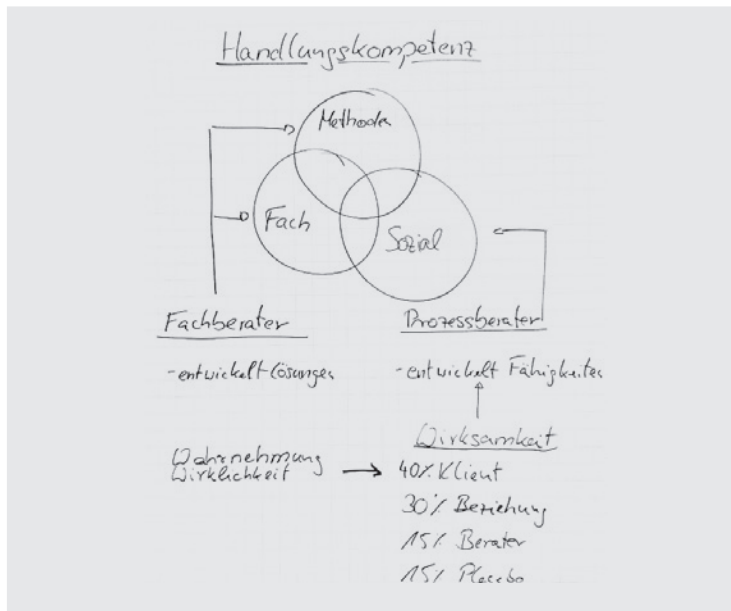 Handlungskompetenz
Methoden
Fach
Sozial
Fachberater
Prozessberater
-entwickelt Lösungen
-entwickelt Fähigkeiten
Wirksamkeit
Wahrnehmung
Wirklichkeit
40% Klient
30% Beziehung
15% Berater
15% Placebo